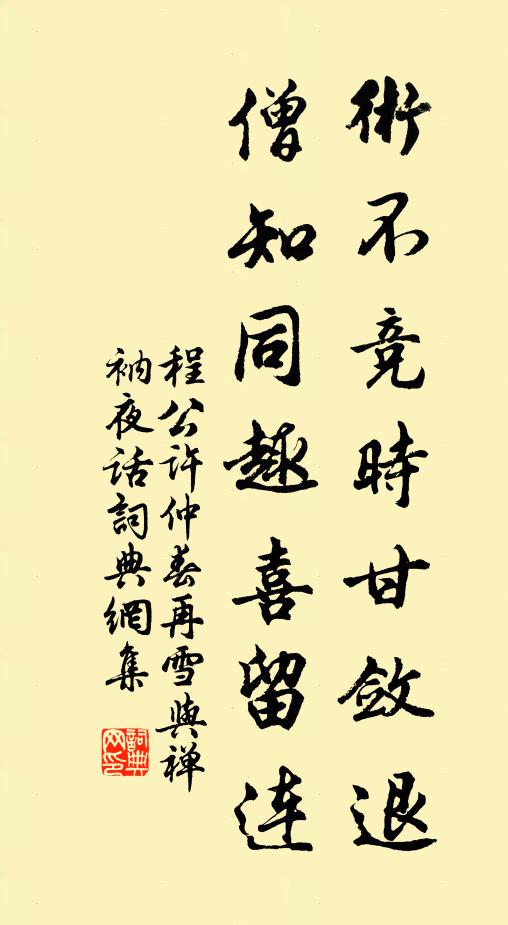 術不竞時甘斂退
僧知同趣喜留連
程公许仲春再雪與禅
衲夜话詞典網集
詞典网印